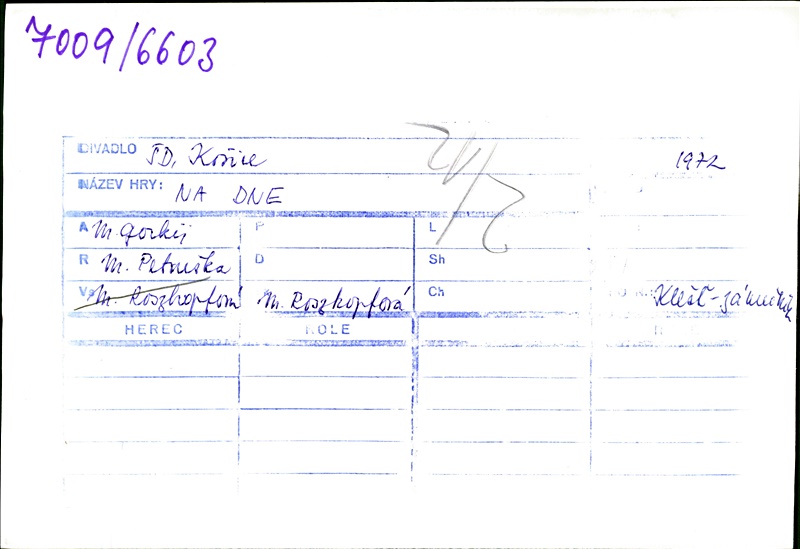 7009/6603
DIVADLO ŠD, Košice 1972
NÁZEV HRY: NA DNE
A M. Gorkij P L
R M. Petruška D Sh
V M. Roszkopfová M. Roszkopfová Ch Klešť-zámečník
HEREC ROLE